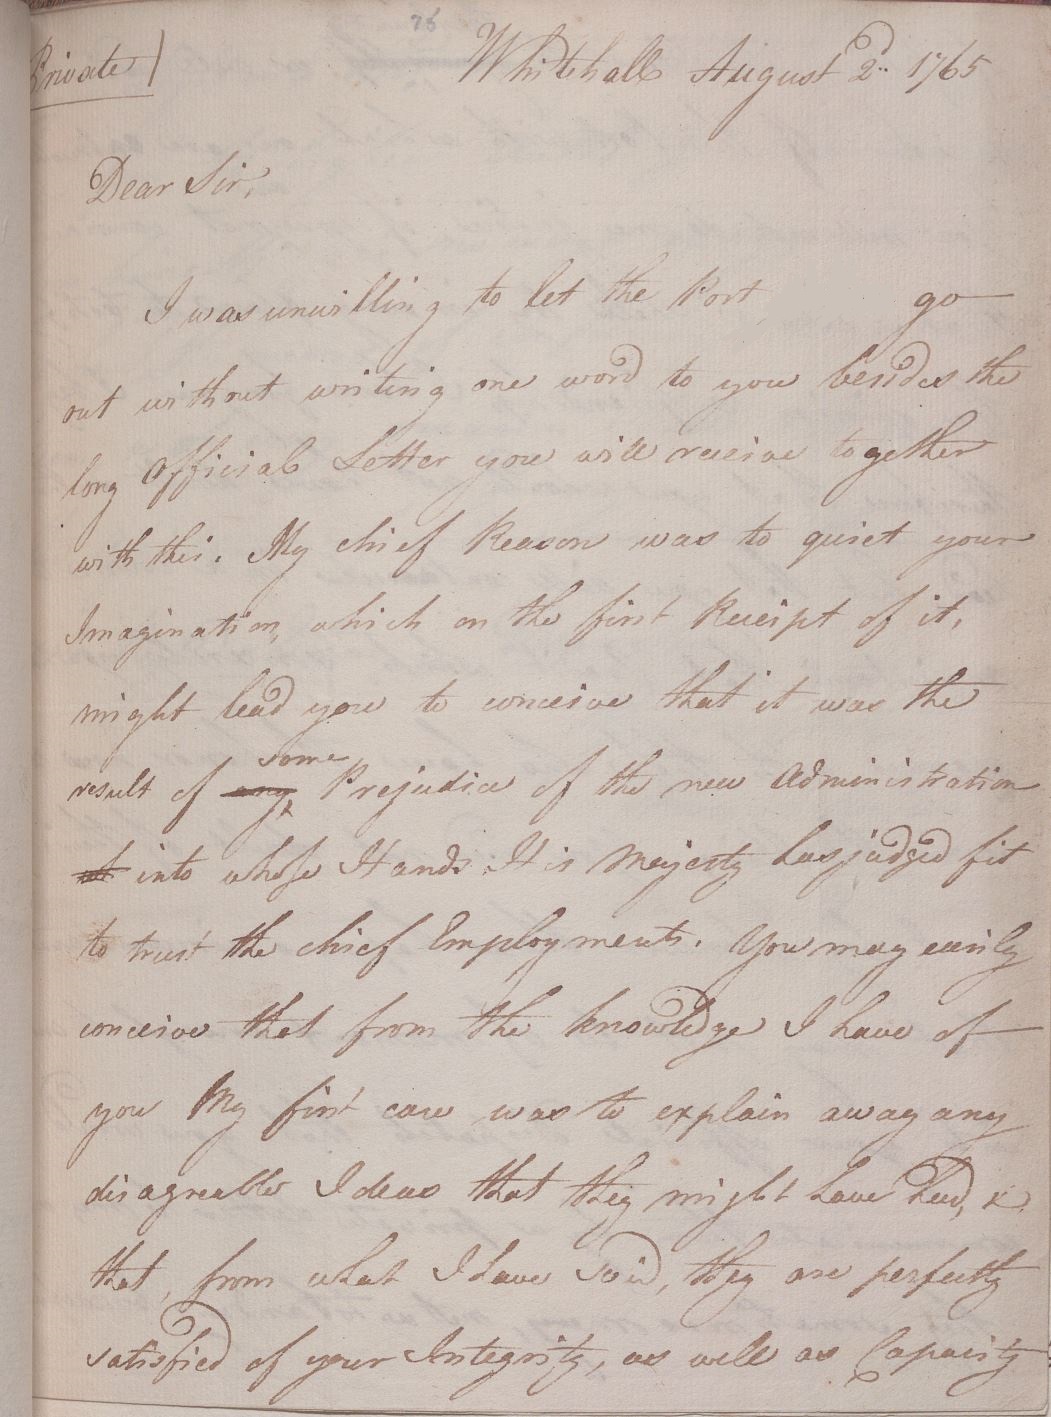 75
Private
Whitehall August 2d.. 1765
Dear Sir,
I was unwilling to let the Post go
out without writing one word to you besides the
long Official Letter you will receive together
with this. My chief Reason was to quiet your
Imagination, which on the first Receipt of it,
might lead you to conceive that it was the
some
result of any Prejudice of the new Administration
into whose Hands His Majesty has judged fit
to trust the chief Employments. You may easily
conceive that from the knowledge I have of
you My first care was to explain away any
disagreable Ideas that they might have had, &
that, from what I have said, they are perfectly
satisfied of your Integrity, as well as Capacity